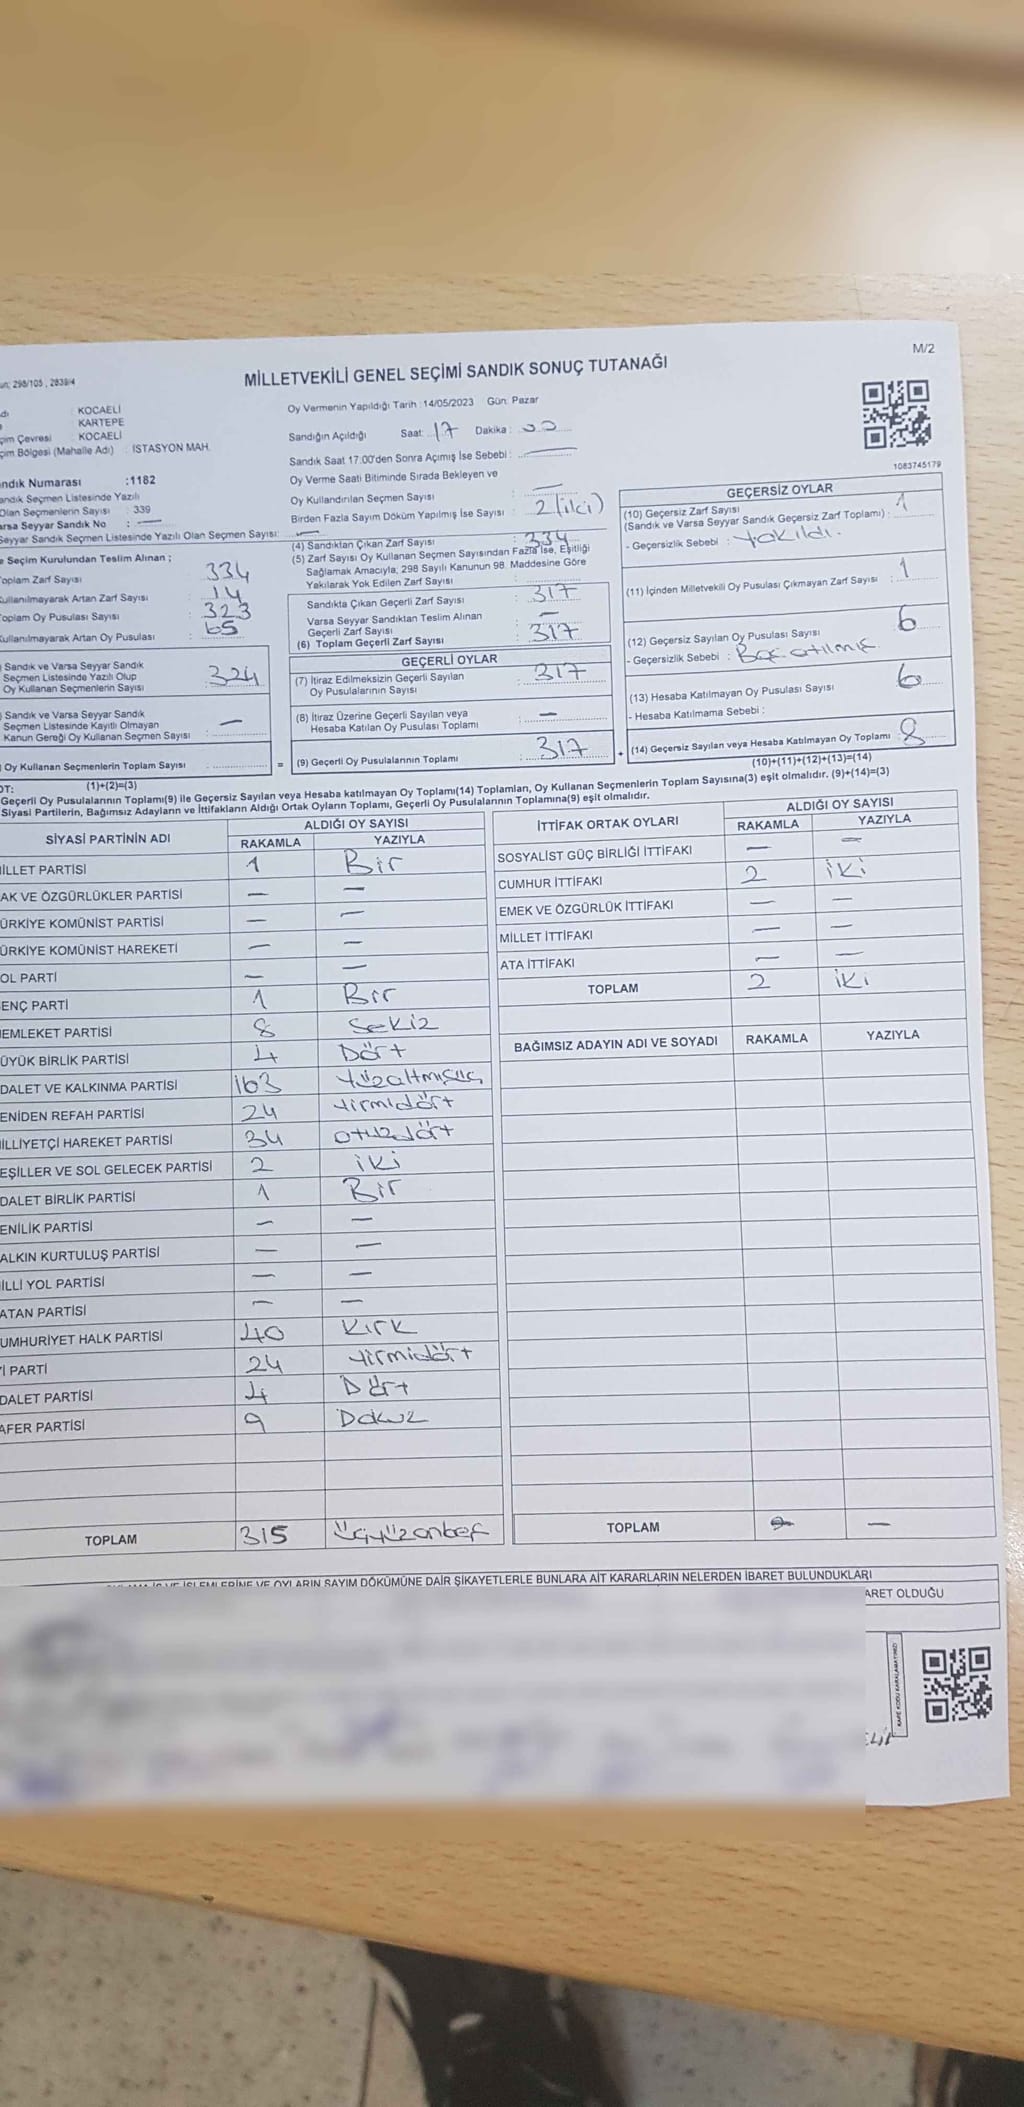 M/2
un: 298/105 , 2839/4
MİLLETVEKİLİ GENEL SEÇİMİ SANDIK SONUÇ TUTANAĞI
dı : KOCAELİ
: KARTEPE
çim Çevresi : KOCAELİ
çim Bölgesi (Mahalle Adı) : İSTASYON MAH.
ndık Numarası :1182
andık Seçmen Listesinde Yazılı
Olan Seçmenlerin Sayısı : 339
arsa Seyyar Sandık No : —
Seyyar Sandık Seçmen Listesinde Yazılı Olan Seçmen Sayısı: —
e Seçim Kurulundan Teslim Alınan ;
oplam Zarf Sayısı : 334
ullanılmayarak Artan Zarf Sayısı : 14
oplam Oy Pusulası Sayısı : 323
ullanılmayarak Artan Oy Pusulası : 65
Sandık ve Varsa Seyyar Sandık
Seçmen Listesinde Yazılı Olup
Oy Kullanan Seçmenlerin Sayısı : 324
Sandık ve Varsa Seyyar Sandık
Seçmen Listesinde Kayıtlı Olmayan
Kanun Gereği Oy Kullanan Seçmen Sayısı : —
Oy Kullanan Seçmenlerin Toplam Sayısı :
(1)+(2)=(3)
Oy Vermenin Yapıldığı Tarih :14/05/2023 Gün: Pazar
Sandığın Açıldığı Saat: 17 Dakika : 00
Sandık Saat 17:00'den Sonra Açımış İse Sebebi : —
Oy Verme Saati Bitiminde Sırada Bekleyen ve
Oy Kullandırılan Seçmen Sayısı : —
Birden Fazla Sayım Döküm Yapılmış İse Sayısı : 2 (iki)
(4) Sandıktan Çıkan Zarf Sayısı : 334
(5) Zarf Sayısı Oy Kullanan Seçmen Sayısından Fazla İse, Eşitliği
Sağlamak Amacıyla, 298 Sayılı Kanunun 98. Maddesine Göre
Yakılarak Yok Edilen Zarf Sayısı :
Sandıkta Çıkan Geçerli Zarf Sayısı : 317
Varsa Seyyar Sandıktan Teslim Alınan
Geçerli Zarf Sayısı : —
(6) Toplam Geçerli Zarf Sayısı : 317
GEÇERLİ OYLAR
(7) İtiraz Edilmeksizin Geçerli Sayılan
Oy Pusulalarının Sayısı : 317
(8) İtiraz Üzerine Geçerli Sayılan veya
Hesaba Katılan Oy Pusulası Toplamı : —
= (9) Geçerli Oy Pusulalarının Toplamı : 317 +
1083745179
GEÇERSİZ OYLAR
(10) Geçersiz Zarf Sayısı
(Sandık ve Varsa Seyyar Sandık Geçersiz Zarf Toplamı) : 1
- Geçersizlik Sebebi : Yakıldı.
(11) İçinden Milletvekili Oy Pusulası Çıkmayan Zarf Sayısı : 1
(12) Geçersiz Sayılan Oy Pusulası Sayısı : 6
- Geçersizlik Sebebi : Boş atılmış
(13) Hesaba Katılmayan Oy Pusulası Sayısı : 6
- Hesaba Katılmama Sebebi :
(14) Geçersiz Sayılan veya Hesaba Katılmayan Oy Toplamı : 8
(10)+(11)+(12)+(13)=(14)
OT:
Geçerli Oy Pusulalarının Toplamı(9) ile Geçersiz Sayılan veya Hesaba katılmayan Oy Toplamı(14) Toplamları, Oy Kullanan Seçmenlerin Toplam Sayısına(3) eşit olmalıdır. (9)+(14)=(3)
Siyasi Partilerin, Bağımsız Adayların ve İttifakların Aldığı Ortak Oyların Toplamı, Geçerli Oy Pusulalarının Toplamına(9) eşit olmalıdır.
SİYASİ PARTİNİN ADI ALDIĞI OY SAYISI
RAKAMLA YAZIYLA
İLLET PARTİSİ 1 Bir
AK VE ÖZGÜRLÜKLER PARTİSİ — —
ÜRKİYE KOMÜNİST PARTİSİ — —
ÜRKİYE KOMÜNİST HAREKETİ — —
OL PARTİ — —
ENÇ PARTİ 1 Bir
EMLEKET PARTİSİ 8 Sekiz
ÜYÜK BİRLİK PARTİSİ 4 Dört
DALET VE KALKINMA PARTİSİ 163 Yüzaltmışüç
ENİDEN REFAH PARTİSİ 24 Yirmidört
İLLİYETÇİ HAREKET PARTİSİ 34 otuzdört
EŞİLLER VE SOL GELECEK PARTİSİ 2 iki
DALET BİRLİK PARTİSİ 1 Bir
ENİLİK PARTİSİ — —
ALKIN KURTULUŞ PARTİSİ — —
İLLİ YOL PARTİSİ — —
ATAN PARTİSİ — —
UMHURİYET HALK PARTİSİ 40 Kırk
İ PARTİ 24 Yirmidört
DALET PARTİSİ 4 Dört
AFER PARTİSİ 9 Dokuz
TOPLAM 315 Üçyüzonbeş
İTTİFAK ORTAK OYLARI ALDIĞI OY SAYISI
RAKAMLA YAZIYLA
SOSYALİST GÜÇ BİRLİĞİ İTTİFAKI — —
CUMHUR İTTİFAKI 2 iki
EMEK VE ÖZGÜRLÜK İTTİFAKI — —
MİLLET İTTİFAKI — —
ATA İTTİFAKI — —
TOPLAM 2 iki
BAĞIMSIZ ADAYIN ADI VE SOYADI RAKAMLA YAZIYLA
TOPLAM —
İŞLEMLERİNE VE OYLARIN SAYIM DÖKÜMÜNE DAİR ŞİKAYETLERLE BUNLARA AİT KARARLARIN NELERDEN İBARET BULUNDUKLARI
ARET OLDUĞU